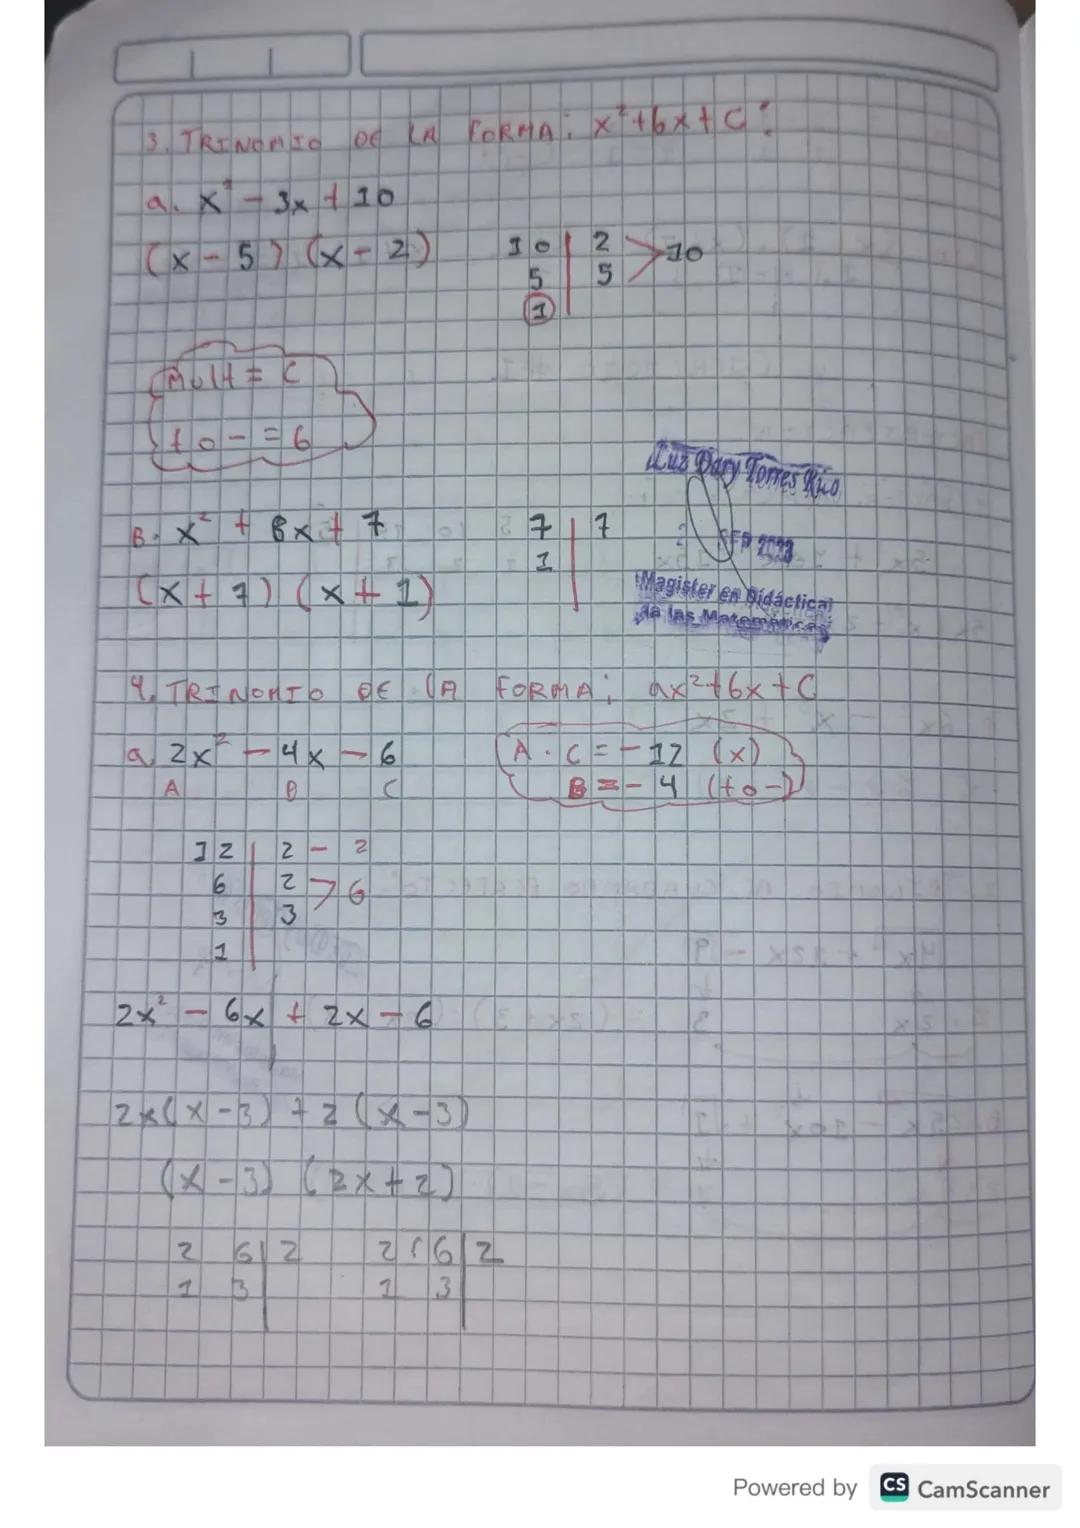 3. TRINOMIO DE LA FORMA: x²+bx+C:
a. x² - 3x + 10
(x - 5) (x - 2)
10 | 2 > 10
5 | 5
1
Mult = C
+ o - = b
B. x² + 8x + 7
7 | 7
1
(x + 7) (x + 1)
Luz Dary Torres Rico
SEP 2023
Magister en Didáctica
de las Matemáticas
4. TRINOMIO DE LA FORMA: ax²+bx+C
a. 2x² - 4x - 6
A B C
A · C = - 12 (x)
B = - 4 (+ o -)
12 | 2 - 2
6 | 2 > 6
3 | 3
1
2x² - 6x + 2x - 6
2x(x - 3) + 2(x - 3)
(x - 3) (2x + 2)
2 6 | 2 2 6 | 2
1 3 | 1 3 |
Powered by CS CamScanner